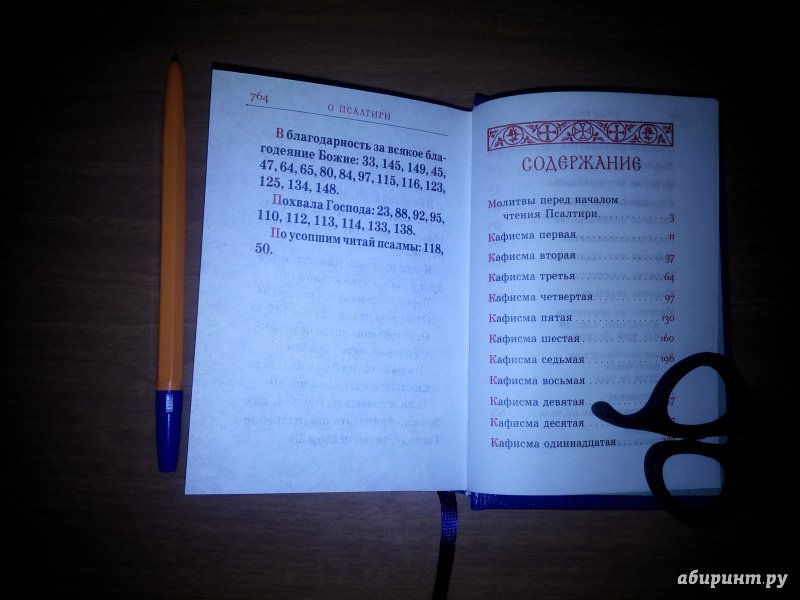 764
О ПСАЛТИРИ
В благодарность за всякое бла-
годеяние Божие: 33, 145, 149, 45,
47, 64, 65, 80, 84, 97, 115, 116, 123,
125, 134, 148.
Похвала Господа: 23, 88, 92, 95,
110, 112, 113, 114, 133, 138.
По усопшим читай псалмы: 118,
50.
СОДЕРЖАНИЕ
Молитвы перед началом
чтения Псалтири 3
Кафисма первая 11
Кафисма вторая 37
Кафисма третья 64
Кафисма четвертая 97
Кафисма пятая 130
Кафисма шестая 160
Кафисма седьмая 196
Кафисма восьмая
Кафисма девятая
Кафисма десятая
Кафисма одиннадцатая
абиринт.ру